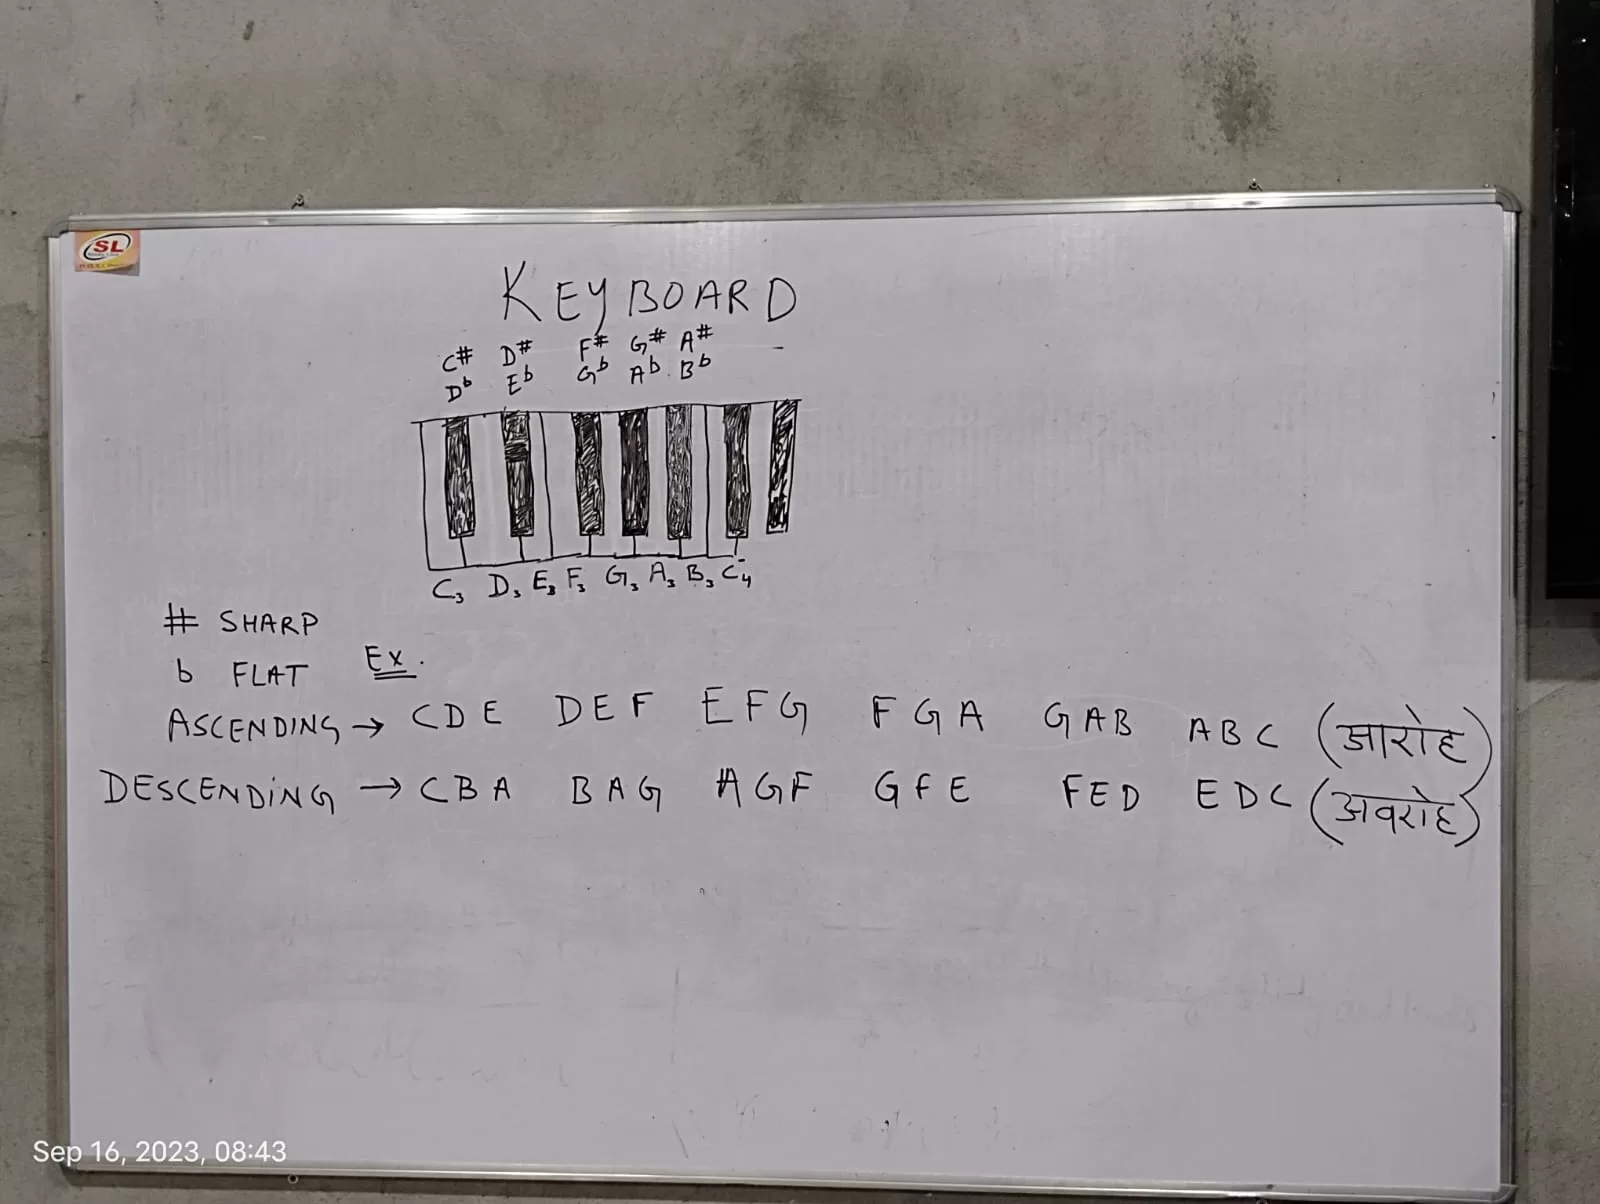 SL
KEYBOARD
C# D# F# G# A#
Db Eb Gb Ab Bb
C3 D3 E3 F3 G3 A3 B3 C4
# SHARP
b FLAT Ex.
ASCENDING → CDE DEF EFG FGA GAB ABC (आरोह)
DESCENDING → CBA BAG AGF GFE FED EDC (अवरोह)
Sep 16, 2023, 08:43